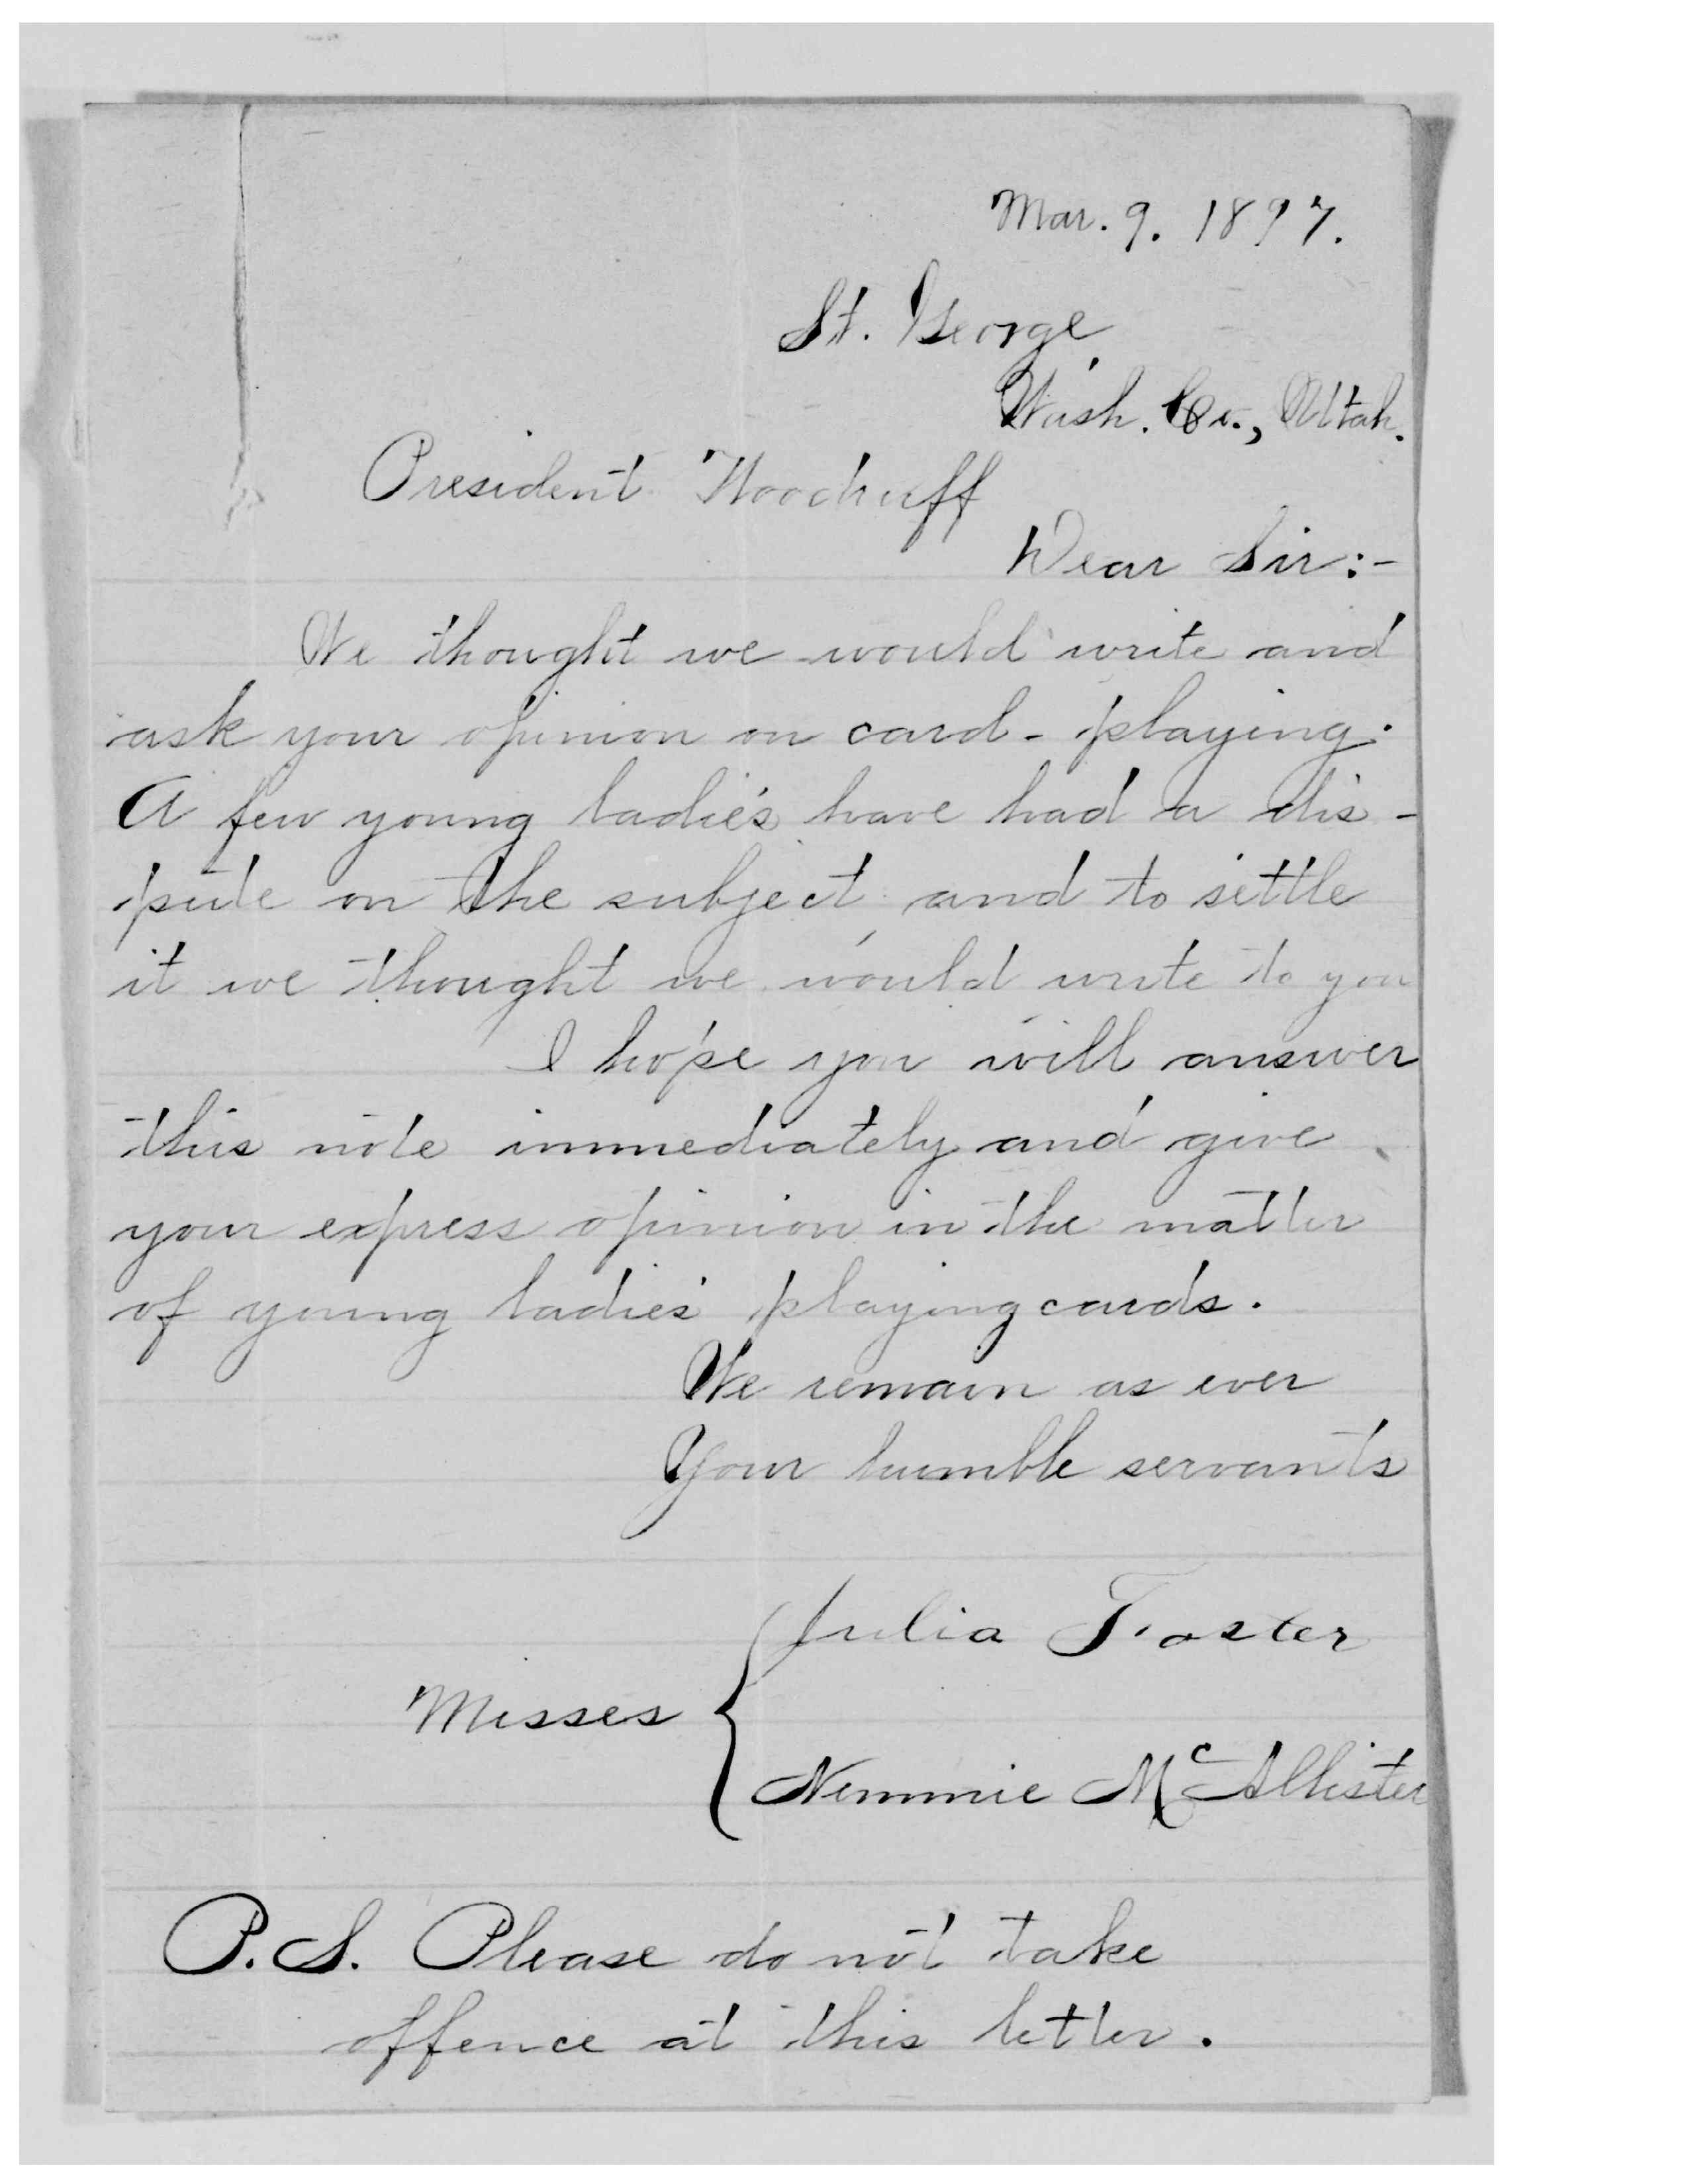 Mar. 9. 1897.
St. George,
Wash. Co., Utah.
President Woodruff
Dear Sir:-
We thought we would write and
ask your opinion on card-playing.
A few young ladies have had a dis-
pute on the subject, and to settle
it we thought we would write to you
I hope you will answer
this note immediately and give
your express opinion in the matter
of young ladies playing cards.
We remain as ever
Your humble servants
Julia Foster
Misses
Nemmie McAllister
P.S. Please do not take
offence at this letter.